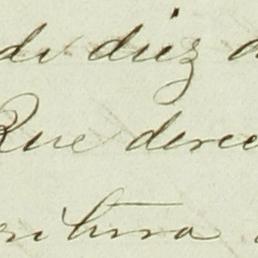 de diez a
Que dere
critura